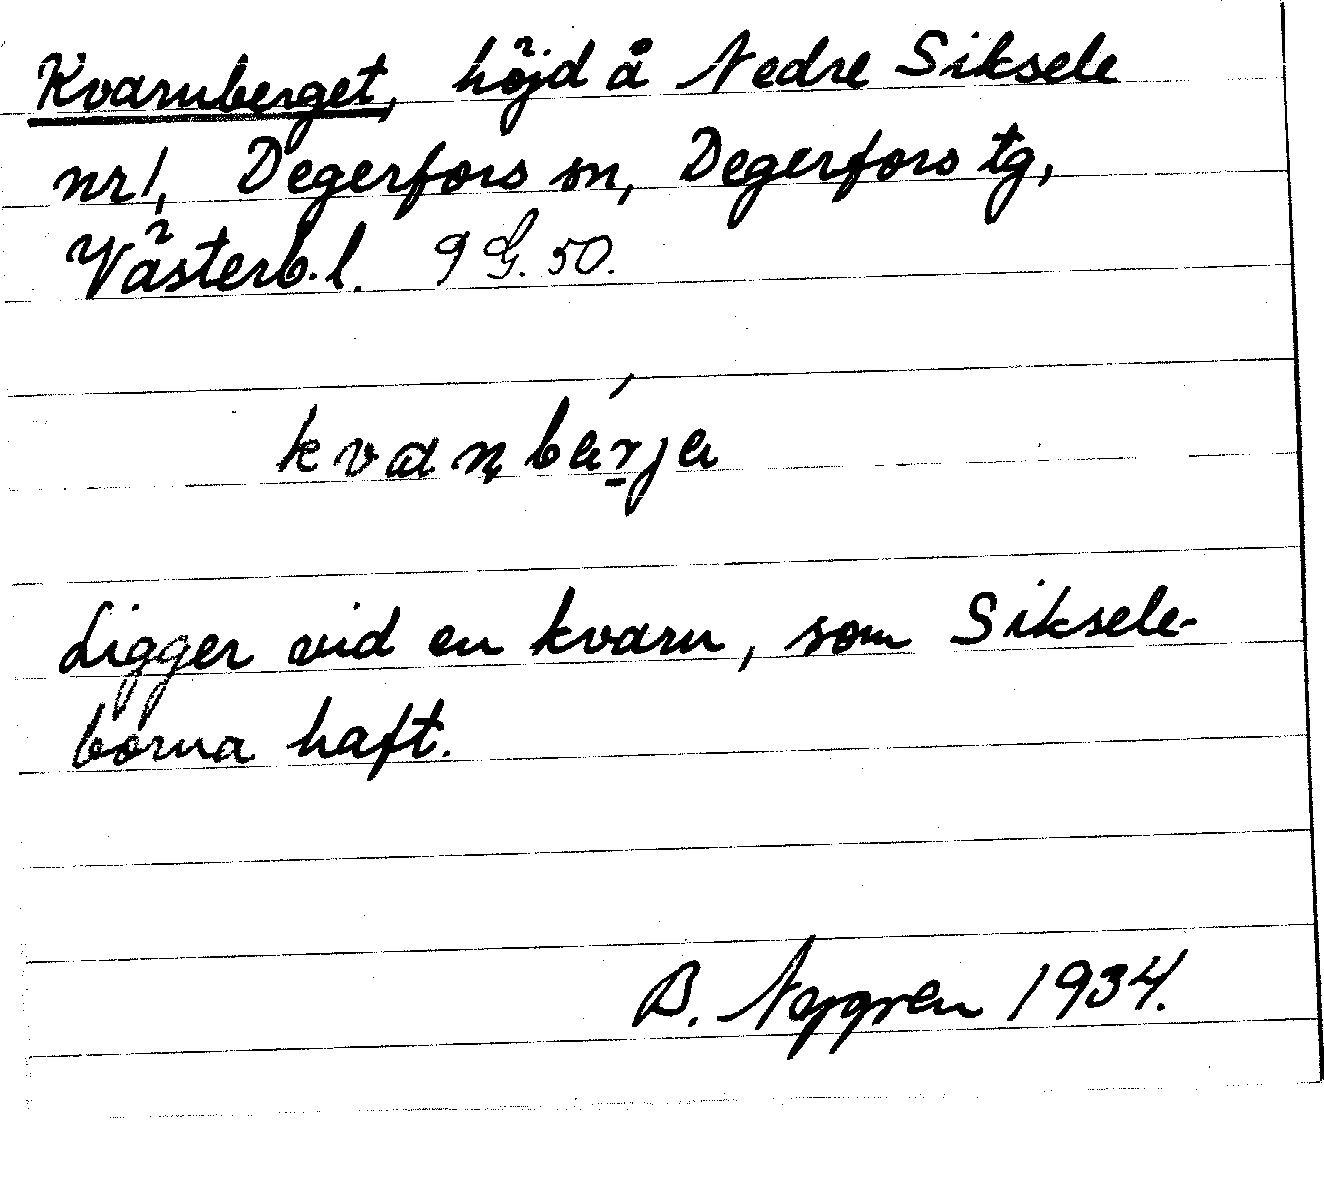 Kvarnberget, höjd å Nedre Siksele
nr 1, Degerfors sn, Degerfors tg,
Västerb. l. 9 G. 50.
Ligger vid en kvarn, som Siksele-
borna haft.
B. Nygren 1934.